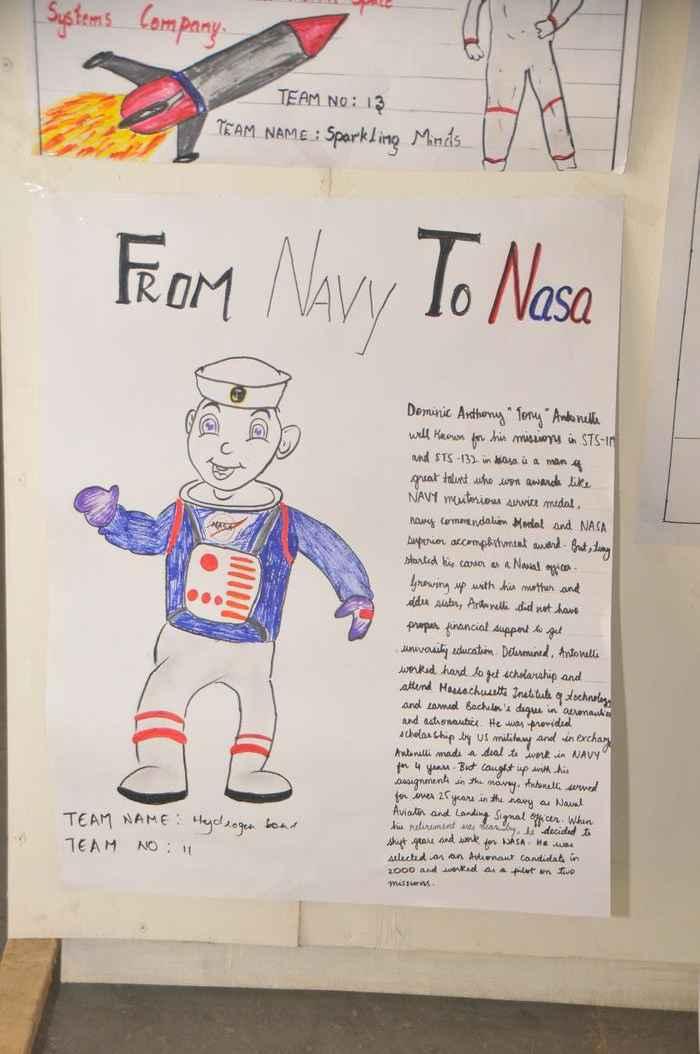 Space
Systems Company.
TEAM NO: 13
TEAM NAME: Sparkling Minds
FROM NAVY TO Nasa
NASA
Dominic Anthony "Tony" Antonelli
well known for his missions in STS-11
and STS-132 in Nasa is a man of
great talent who won awards like
NAVY meritorious service medal,
navy commendation Medal and NASA
superior accomplishment award. But, Tony
started his career as a Naval officer.
Growing up with his mother and
older sister, Antonelli did not have
proper financial support to get
university education. Determined, Antonelli
worked hard to get scholarship and
attend Massachusetts Institute of technology
and earned Bachelor's degree in aeronautics
and astronautics. He was provided
scholarship by US military and in exchang
Antonelli made a deal to work in NAVY
for 4 years. But caught up with his
assignments in the navy, Antonelli served
for over 25 years in the navy as Naval
Aviator and Landing Signal Officer. When
his retirement was nearby, he decided to
shift gears and work for NASA. He was
selected as an Astronaut candidate in
2000 and worked as a pilot on two
missions.
TEAM NAME: Hydrogen
TEAM NO: 11